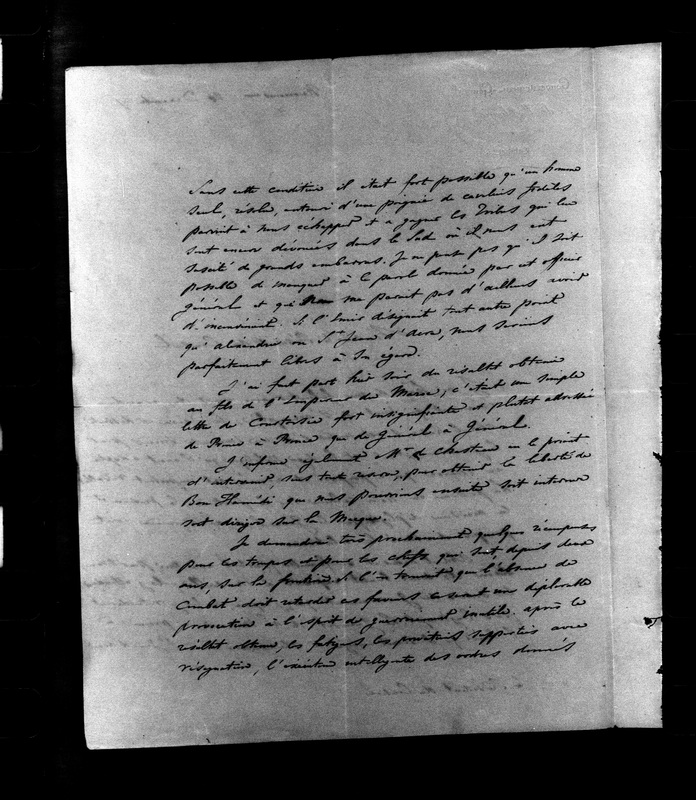 Sans cette condition il était fort possible qu'un homme
seul, résolu, entouré d'une poignée de cavaliers fidèles
parvint à nous échapper et a gagner les Tribus qui lui
sont encore dévouées dans le Sud où il nous eut
suscité de grands embarras. Je ne pense pas qu'il soit
possible de manquer à la parole donnée par cet officier
général et qui ne me parait pas d'ailleurs avoir
d'inconvénient. Si l'Emir désignait tout autre point
qu'alexandrie ou St Jean d'Acre, nous serions
parfaitement libres à son égard.
J'ai fait part hier soir du résultat obtenu
au fils de l'Empereur du Maroc; c'était une simple
lettre de Courtoisie fort insignifiante et plutôt adressée
de Prince à Prince que de Général à Général.
J'informe également Mr de Chasteau en le priant
d'intervenir sans tout pour obtenir la liberté de
Bou Hamédi que nous pourrions ensuite soit interner
soit diriger sur la Mecque.
Je demanderai très prochainement quelques récompenses
pour les troupes et pour les chefs qui sont depuis deux
ans, sur la frontière. Si l'on trouvait que l'absence de
Combat doit retarder ces faveurs ce serait une déplorable
provocation à l'esprit de guerroiement inutile. après le
résultat obtenu, les fatigues, les privations supportées avec
résignation, l'exécution intelligente des ordres donnés